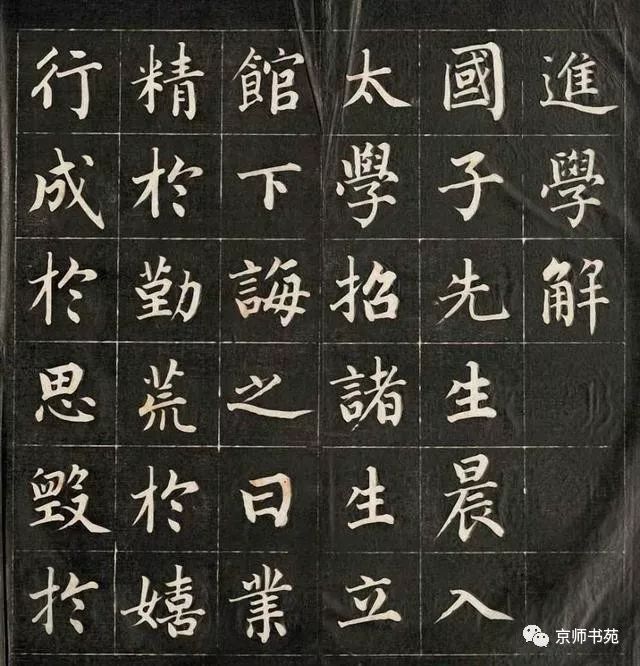 進學解
國子先生晨入
太學招諸生立
館下誨之曰業
精於勤荒於嬉
行成於思毀於
京师书苑